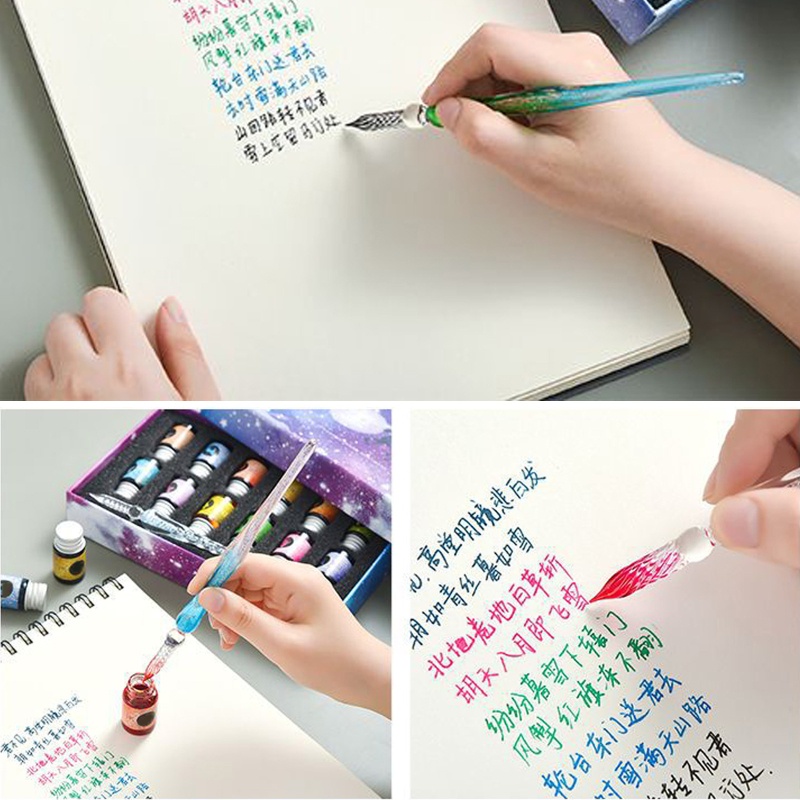 胡天八月
纷纷暮雪下辕门
风掣红旗冻不翻
轮台东门送君去
去时雪满天山路
山回路转不见君
雪上空留马行处
君不见,高堂明镜悲白发
朝如青丝暮如雪
北地卷地白草折
胡天八月即飞雪
纷纷暮雪下辕门
风掣红旗冻不翻
轮台东门送君去
高堂明镜悲白发
朝如青丝暮如雪
北地卷地白草折
胡天八月即飞雪
纷纷暮雪下辕门
风掣红旗冻不翻
轮台东门送君去
时雪满天山路
路转不见君
行处.